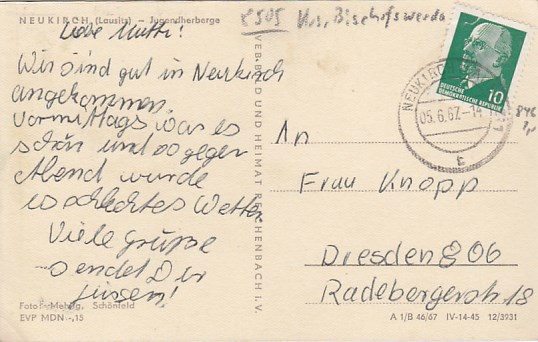 NEUKIRCH (Lausitz) – Jugendherberge
8505 Krs. Bischofswerda
Liebe Mutti!
Wir sind gut in Neukirch
angekommen.
Vormittags war es
schön und so gegen
Abend wurde
es schlechtes Wetter
Viele Grüße
sendet Dir
VEB BILD UND HEIMAT REICHENBACH I. V.
10
DEUTSCHE
DEMOKRATISCHE REPUBLIK
NEUKIRCH
05.6.67.-14
An
Frau Knopp
Dresden 806
Radebergerstr 18
Schönfeld
EVP MDN -,15
A 1/B 46/67 IV-14-45 12/3931